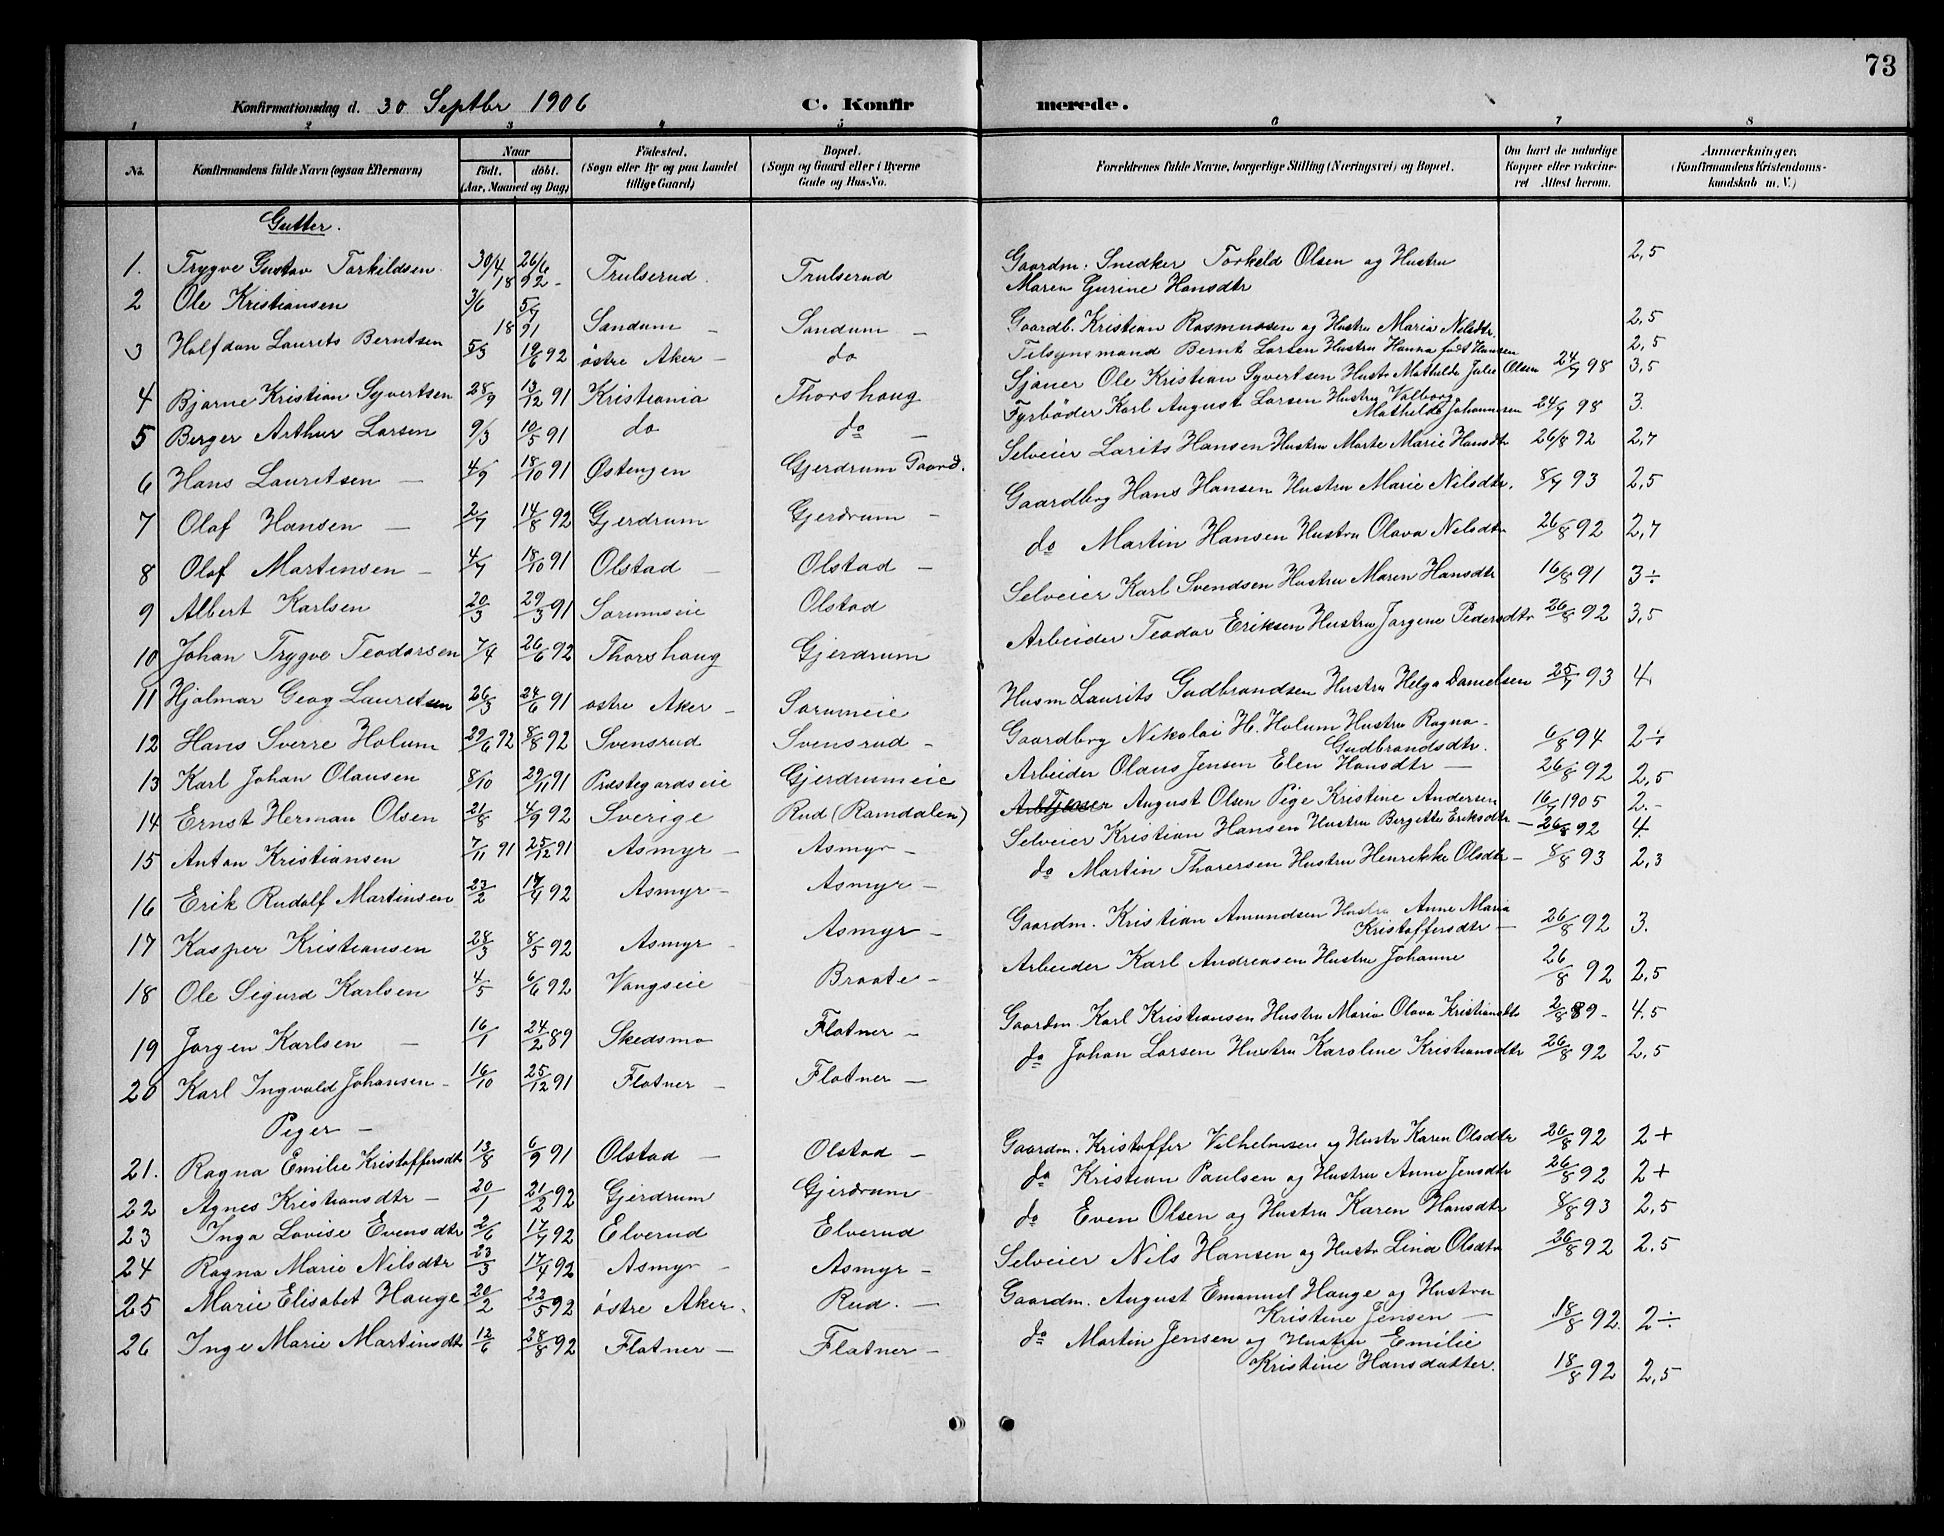 73
Konfirmationsdag d. 30 Septbr 1906 C. Konfirmerede.
1 2 3 4 5 6 7 8
No. Konfirmandens fulde Navn (ogsaa Efternavn) Naar födt. döbt. (Aar, Maaned og Dag) Födested. (Sogn eller By og paa Landet tillige Gaard) Bopæl. (Sogn og Gaard eller i Byerne Gade og Hus-No. Forældrenes fulde Navne, borgerlige Stilling (Næringsvei) og Bopæl. Om havt de naturlige Kopper eller vaccineret Attest herom. Anmærkninger, (Konfirmandens Kristendomskundskab m. V.)
Gutter.
1. Trygve Gustav Torkildsen 30/4 26/6 1892 - Trulserud. Trulserud Gaardm. Snedker Torkild Olsen og Hustru Maren Gurine Hansdtr 2,5
2 Ole Kristiansen 3/6 5/7 1891 Sandum - Sandum - Gaardb. Kristian Rasmussen og Hustru Maria Nilsdtr. 2,5
3 Halfdan Laurits Berntsen 5/3 19/6 92 östre Aker - do Tilsynsmand Bernt Larsen Hustru Hanna født Hansen 2,5
4 Bjarne Kristian Syvertsen 28/9 13/12 91 Kristiania Thorshaug Sjöner Ole Kristian Syvertsen Hustr Mathilde Julie Olsen 24/7 98 3,5
5 Berger Arthur Larsen 9/3 10/5 91 do do - Fyrböder Karl August Larsen Hustru Valborg Mathilde Johannesen 24/7 98 3.
6 Hans Lauritsen - 4/9 18/10 91 Østengen Gjerdrum Gaard. Selveier Larits Hansen Hustru Marte Marie Hansdtr 26/8 92 2,7
7 Olaf Hansen - 2/7 14/8 92 Gjerdrum Gjerdrum - Gaardbrg Hans Hansen Hustru Marie Nilsdtr. 8/7 93 2,5
8 Olaf Martensen - 4/7 18/10 91 Olstad - Olstad - do Martin Hansen Hustru Olava Nilsdtr 26/8 92 2,7
9 Albert Karlsen 20/3 29/3 91 Sørumseie Olstad Selveier Karl Svendsen Hustru Maren Hansdtr 16/8 91 3÷
10 Johan Trygve Teodorsen 7/4 26/6 92 Thorshaug Gjerdrum Arbeider Teodor Eriksen Hustru Jørgene Pedersdtr 26/8 92 3,5
11 Hjalmar Geog Lauritsen 26/3 24/6 91 østre Aker - Sørumeie Husm Laurits Gudbrandsen Hustru Helga Danielsen 25/7 93 4.
12 Hans Sverre Holum 29/6 92 8/8 92 Svensrud Svensrud - Gaardbrg Nikolai H. Holum Hustru Ragna Gudbrandsdtr. 6/8 94 2÷
13 Karl Johan Olausen 8/10 29/11 91 Præstegardseie Gjerdrumeie Arbeider Olaus Jensen Elen Hansdtr - 26/8 92 2,5
14 Ernst Herman Olsen 21/8 4/9 92 Sverige Rud (Ramdalen) August Olsen Pige Kristine Andersen 16/7 1905 2.-
15 Anton Kristiansen 7/11 91 25/12 91 Asmyr - Asmyr - Selveier Kristian Hansen Hustru Bergitte Eriksdtr - 26/8 92 4.
16 Erik Rudolf Martinsen 23/2 17/4 92 Asmyr - Asmyr - do Martin Thoresen Hustru Henrikke Olsdtr - 8/8 93 2,3
17 Kasper Kristiansen 28/3 8/5 92 Asmyr - Asmyr - Gaardm. Kristian Amundsen Hustru Anne Maria Kristoffersdtr - 26/8 92 3.
18 Ole Sigurd Karlsen 4/5 6/6 92 Vangseie Braate - Arbeider Karl Andreasen Hustru Johanne 26/8 92 2,5
19 Jørgen Karlsen - 16/1 24/2 89 Skedsmo Flatner - Gaardm. Karl Kristiansen Hustru Maria Olava Kristiansdtr 2/8 89 - 4.5
20 Karl Ingvald Johansen - 16/10 25/12 91 Flatner - Flatner - do Johan Larsen Hustru Karoline Kristiansdtr 26/8 92 2,5
Piger -
21. Ragna Emilie Kristoffersdtr 13/8 6/9 91 Olstad - Olstad - Gaardm. Kristoffer Vilhelmsen og Hustr Karen Olsdtr 26/8 92 2+
22 Agnes Kristiansdtr - 20/1 21/2 92 Gjerdrum Gjerdrum - do Kristian Paulsen og Hustru Anne Jensdtr 26/8 92 2+
23 Inga Lovise Evensdtr 2/6 17/7 92 Elverud Elverud do Even Olsen og Hustru Karen Hansdtr 8/8 93 2,5
24 Ragna Marie Nilsdtr 23/3 17/4 92 Asmyr - Asmyr - Selveier Nils Hansen og Hustr Lina Olsdtr 26/8 92 2.5
25 Marie Elisabet Hauge 20/2 22/5 92 östre Aker. Rud. - Gaardm. August Emanuel Hauge og Hustru Kristine Jensen - 18/8 92. 2÷
26 Inge Marie Martinsdtr 12/6 28/8 92 Flatner - Flatner - do Martin Jensen og Hustru Emilie Kristine Hansdatter. 18/8 92 2,5